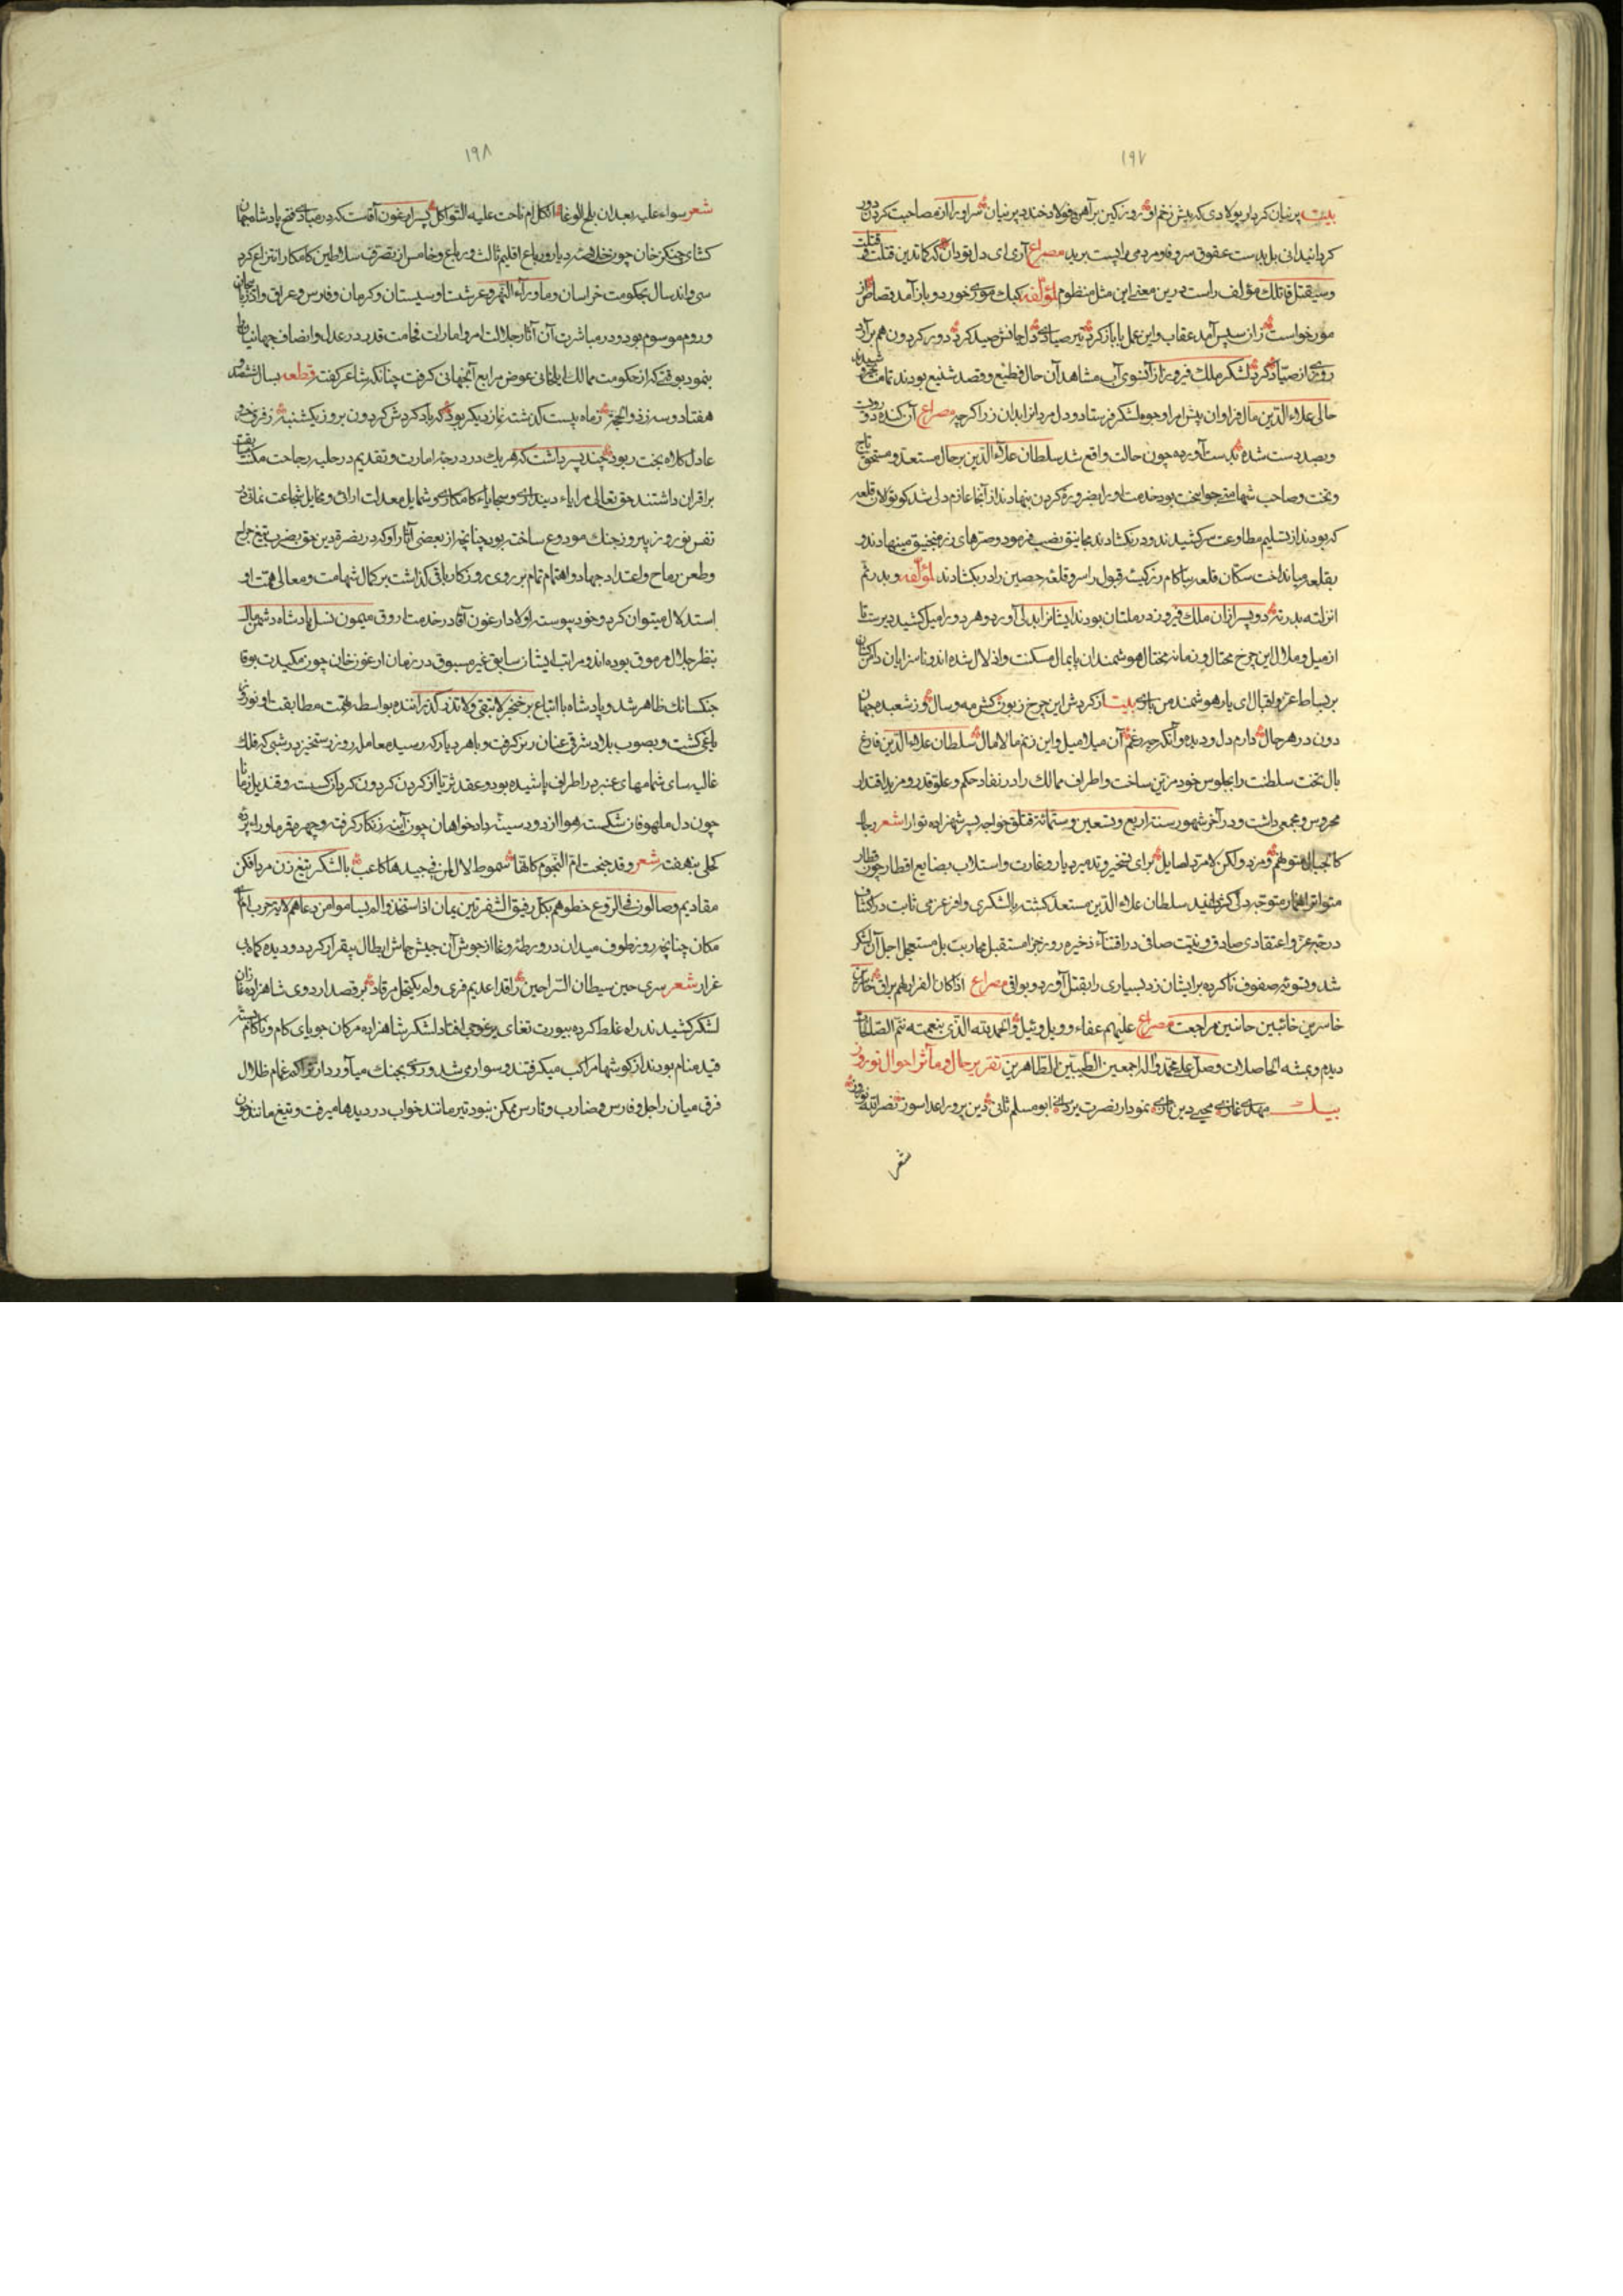 ۱۹۷
بیت پرنیان کردار پولادی که پیش زخم او روز کین بر آهن و فولاد خندد پرنیان سر او را از مصاحبت کردن دور
کردانیدانی بل بدست عقوق سر وفا و مردمی را پست برید مصراع آری ای دل تو دان که کما تدین قتلت قتلت
وسیقتل قاتلک مؤلف راست درین معنی این مثل منظوم لمؤلفه کبک موری خورد و باز آمد قصاص از
مور خواست از سپس آمد عقاب و این عمل با باز کرد تیر صیادی دل جانش صید کرد دور کردون هم برآرد
روزی از صیاد کرد لشکر ملک فیروز از آنسوی آب مشاهد آن حال فظیع و قصد شنیع بودند تمامت
حالی علاء الدین مال فراوان پیش امرا و وجوه لشکر فرستاد و دل مردانرا بدان زر اکرچه مصراع آن کنده
و بصد دست شده بدست آورده چون حالت واقع شد سلطان علاء الدین برحال مستعد و مستحق تاج
و تخت و صاحب شهامت و جوانبخت بود خدمت او را بضرورة کردن بنهادند از آنجا عازم دلی شد کوتوالان قلعه
که بودند از تسلیم مطاوعت سرکشیدند و در نکشادند مجانیق نصب فرمود و صرهای زر در منجنیق مینهادند و
بقلعه میانداخت سکان قلعه بناکام رز کیت قبول را سر و قلعه حصین را در بکشادند لمؤلفه و بدرتم
انزلته بدرته دو پسر از آن ملک فیروز در ملتان بودند ایشانرا بدلی آورد و هر دو را میل کشید دیرست تا
از میل و ملال این چرخ محتال و زمانه مختال هوشمندان پایمال مسکنت و اذلال شده اند و ناسزایان دامن کشان
بر بساط عز و اقبال ای یار هوشمند من یاری بیت از کردش این چرخ زبون کش مه و سال وز شعبده جهان
دون در هر حال دارم دل و دیده و آنکه چه رغم آن میلا میل و این زغم مالامال سلطان علاء الدین فارغ
بال تخت سلطنت را بجلوس خود مزین ساخت و اطراف ممالک را در نفاد حکم و علو قدر و مزید اقتدار
محروس و مجمعی داشت و در آخر شهور سنة اربع و تسعین و ستمائة قتلق خواجه پسر شهزاده نوا را شعر رجال
کالجبال متوهم و مرد ولکن لامرد لصایل برای تسخیر و تدمیر دیار و غارت و استلاب بضایع اقطار چون قطار
متواتر انهار متوجه دلی کردانید سلطان علاء الدین مستعد کشته با لشکری وافر و عزمی ثابت در اکتساب
درجه عز و اعتقادی صادق و نیت صافی در اقتناء ذخیره روز جزا مستقبل محاربت بل مستعجل اجل آن لشکر
شد و بتسویة صفوف ناکرده بر ایشان زد بسیاری را بقتل آورد و بواقی مصراع اذا کان الفرار لهم براق خاسرین
خاسرین خائبین حانین مراجعت مصراع علیهم عفاء و ویل وئیل و الحمد لله الذی بنعمته تتم الصالحات
دیدم و بمنه الحاصلات وصل علی محمد و آله اجمعین الطیبین الطاهرین تقریر حال و مآثر احوال نوروز
بیت مهدی غازی محیی دین تازی نمودار نصرت یزدانی ابو مسلم ثانی دین پرور اعدا سوز نصر الله نوروز
شعر
۱۹۸
شعر سواء علیه بعد ان بلغ الوغا اکلل ام ناحت علیه الثواکل پسر ارغون آقاست که در مبادی فتح پادشاه جهان
کشای جنکز خان چون خلاصه دیار و رباع اقلیم ثالث و رابع و خامس از تصرف سلاطین کامکار انتزاع کرد
سی و اند سال بحکومت خراسان و ماوراء النهر و غرشت و سیستان و کرمان و فارس و عراق و اذربایجان
و روم موسوم بود و در مباشرت آن آثار جلالت امر و امارات فخامت قدر در عدل و انصاف جهانیانرا
بنمود بوقتی که از حکومت ممالک ایلخانی عوض مرابع آنجهانی کرفت چنانکه شاعر کفت قطعه بسال ششصد
هفتاد و سه ز ذوالحجة ز ماه بیست کذشته نماز دیکر بود که باد کردش کردون بروز یکشنبه ز فرق خسرو
عادل کلاه بخت ربود چند پسر داشت که هریک در درجه امارت و تقدیم در حلبه رجاحت مکنت سبقت
بر اقران داشتند حق تعالی مرایاء دینداری و سجایاء کامکاری و شمایل معدلت ارائی و مخایل شجاعت نمائی در
نفس نوروز پیروز جنک مودوع ساخته بود چنانچه از بعضی آثار او که در نصرة دین حق بضرب تیغ جراح
و طعن رماح و اعتداد جهاد و اهتمام تمام بر روی روزکار باقی کذاشت بر کمال شهامت و معالی همت او
استدلال میتوان کرد و خود پیوسته اولاد ارغون آقا در خدمت اروق میمون نسل پادشاه دشمن مال
بنظر جلال مرموق بوده اند و مراتب ایشان سابق غیر مسبوق در زمان ارغون خان چون مکیدت بوقا
جنکسانک ظاهر شد و پادشاه با اتباع بر خنجر لا تبقی و لا تذر کذرانیده بواسطه تهمت مطابقت او نوروز
یاغی کشت و بصوب بلاد شرقی عنان ریز کرفت و باهر دیار که رسید معامله روز رستخیز در شبی که فلک
غالیه سای شمامهای عنبر در اطراف پاشیده بود و عقد ثریا از کردن کردون کرد از کسسته و قندیل زهره
چون دل ملهوفان شکسته هوا از دود سینه دادخواهان چون آینه زنکار کرفته و چهره قمر ماورا پرده
کحلی بنهفته شعر و قد جنحت ام النجوم کانها سموط لال لمن فی جیدها کاعب با لشکر تیغ زن مرد افکن
مقادیم وصالون فی الروع خطوهم بکل رقیق الشفرتین یمان اذا استنجدوا لم یسالوا من دعاهم لایة حرب ام بای
مکان چنانچه روز طوف میدان در ورطه وغا از جوش آن جیش جاش ابطال بیقرار کردد و دیده کماهی
غرار شعر سری حین سیطان السراجین راقدا عدیم قری و لم یکتحل مرقاد بر قصد اردوی شاهزاده غازان
لشکر کشیدند راه غلط کرده بیورت تغای یرغوجی افتاد لشکر شاهزاده مرکان جویای کام و ناکام
قید منام بودند از کوشها مراکب میکرفتند و سوار می شد و روی بجنک میآورد از تراکم غمام ظلال
فرق میان راجل و فارس و ضارب و تارس ممکن نبود تیر مانند خواب در دیدها میرفت و تیغ مانند خون